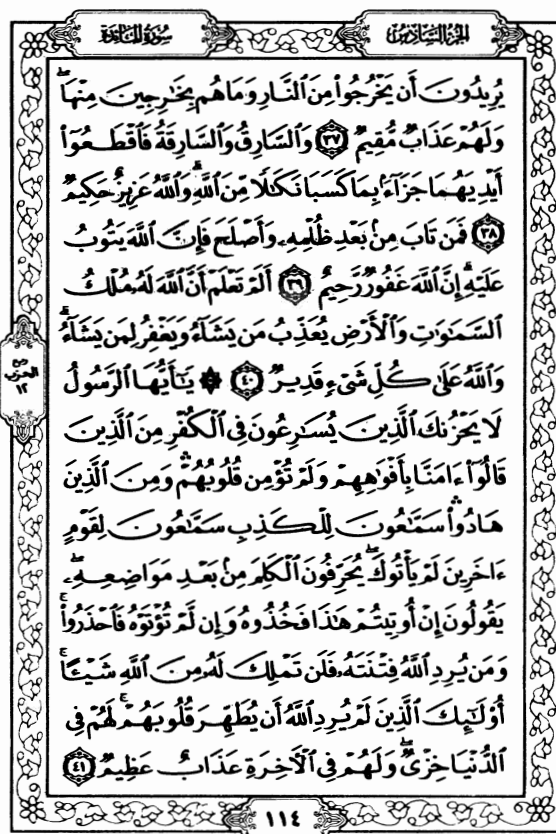 الجزء السادس
سورة المائدة
يُرِيدُونَ أَن يَخْرُجُوا۟ مِنَ ٱلنَّارِ وَمَا هُم بِخَٰرِجِينَ مِنْهَا ۖ
وَلَهُمْ عَذَابٌ مُّقِيمٌ ٣٧ وَٱلسَّارِقُ وَٱلسَّارِقَةُ فَٱقْطَعُوٓا۟
أَيْدِيَهُمَا جَزَآءًۢ بِمَا كَسَبَا نَكَٰلًا مِّنَ ٱللَّهِ ۗ وَٱللَّهُ عَزِيزٌ حَكِيمٌ
٣٨ فَمَن تَابَ مِنۢ بَعْدِ ظُلْمِهِۦ وَأَصْلَحَ فَإِنَّ ٱللَّهَ يَتُوبُ
عَلَيْهِ ۗ إِنَّ ٱللَّهَ غَفُورٌ رَّحِيمٌ ٣٩ أَلَمْ تَعْلَمْ أَنَّ ٱللَّهَ لَهُۥ مُلْكُ
ٱلسَّمَٰوَٰتِ وَٱلْأَرْضِ يُعَذِّبُ مَن يَشَآءُ وَيَغْفِرُ لِمَن يَشَآءُ ۗ
وَٱللَّهُ عَلَىٰ كُلِّ شَىْءٍ قَدِيرٌ ٤٠ ۞ يَٰٓأَيُّهَا ٱلرَّسُولُ
لَا يَحْزُنكَ ٱلَّذِينَ يُسَٰرِعُونَ فِى ٱلْكُفْرِ مِنَ ٱلَّذِينَ
قَالُوٓا۟ ءَامَنَّا بِأَفْوَٰهِهِمْ وَلَمْ تُؤْمِن قُلُوبُهُمْ ۛ وَمِنَ ٱلَّذِينَ
هَادُوا۟ ۛ سَمَّٰعُونَ لِلْكَذِبِ سَمَّٰعُونَ لِقَوْمٍ
ءَاخَرِينَ لَمْ يَأْتُوكَ ۖ يُحَرِّفُونَ ٱلْكَلِمَ مِنۢ بَعْدِ مَوَاضِعِهِۦ ۖ
يَقُولُونَ إِنْ أُوتِيتُمْ هَٰذَا فَخُذُوهُ وَإِن لَّمْ تُؤْتَوْهُ فَٱحْذَرُوا۟ ۚ
وَمَن يُرِدِ ٱللَّهُ فِتْنَتَهُۥ فَلَن تَمْلِكَ لَهُۥ مِنَ ٱللَّهِ شَيْـًٔا ۚ
أُو۟لَٰٓئِكَ ٱلَّذِينَ لَمْ يُرِدِ ٱللَّهُ أَن يُطَهِّرَ قُلُوبَهُمْ ۚ لَهُمْ فِى
ٱلدُّنْيَا خِزْىٌ ۖ وَلَهُمْ فِى ٱلْءَاخِرَةِ عَذَابٌ عَظِيمٌ ٤١
ربع
الحزب
١٢
١١٤